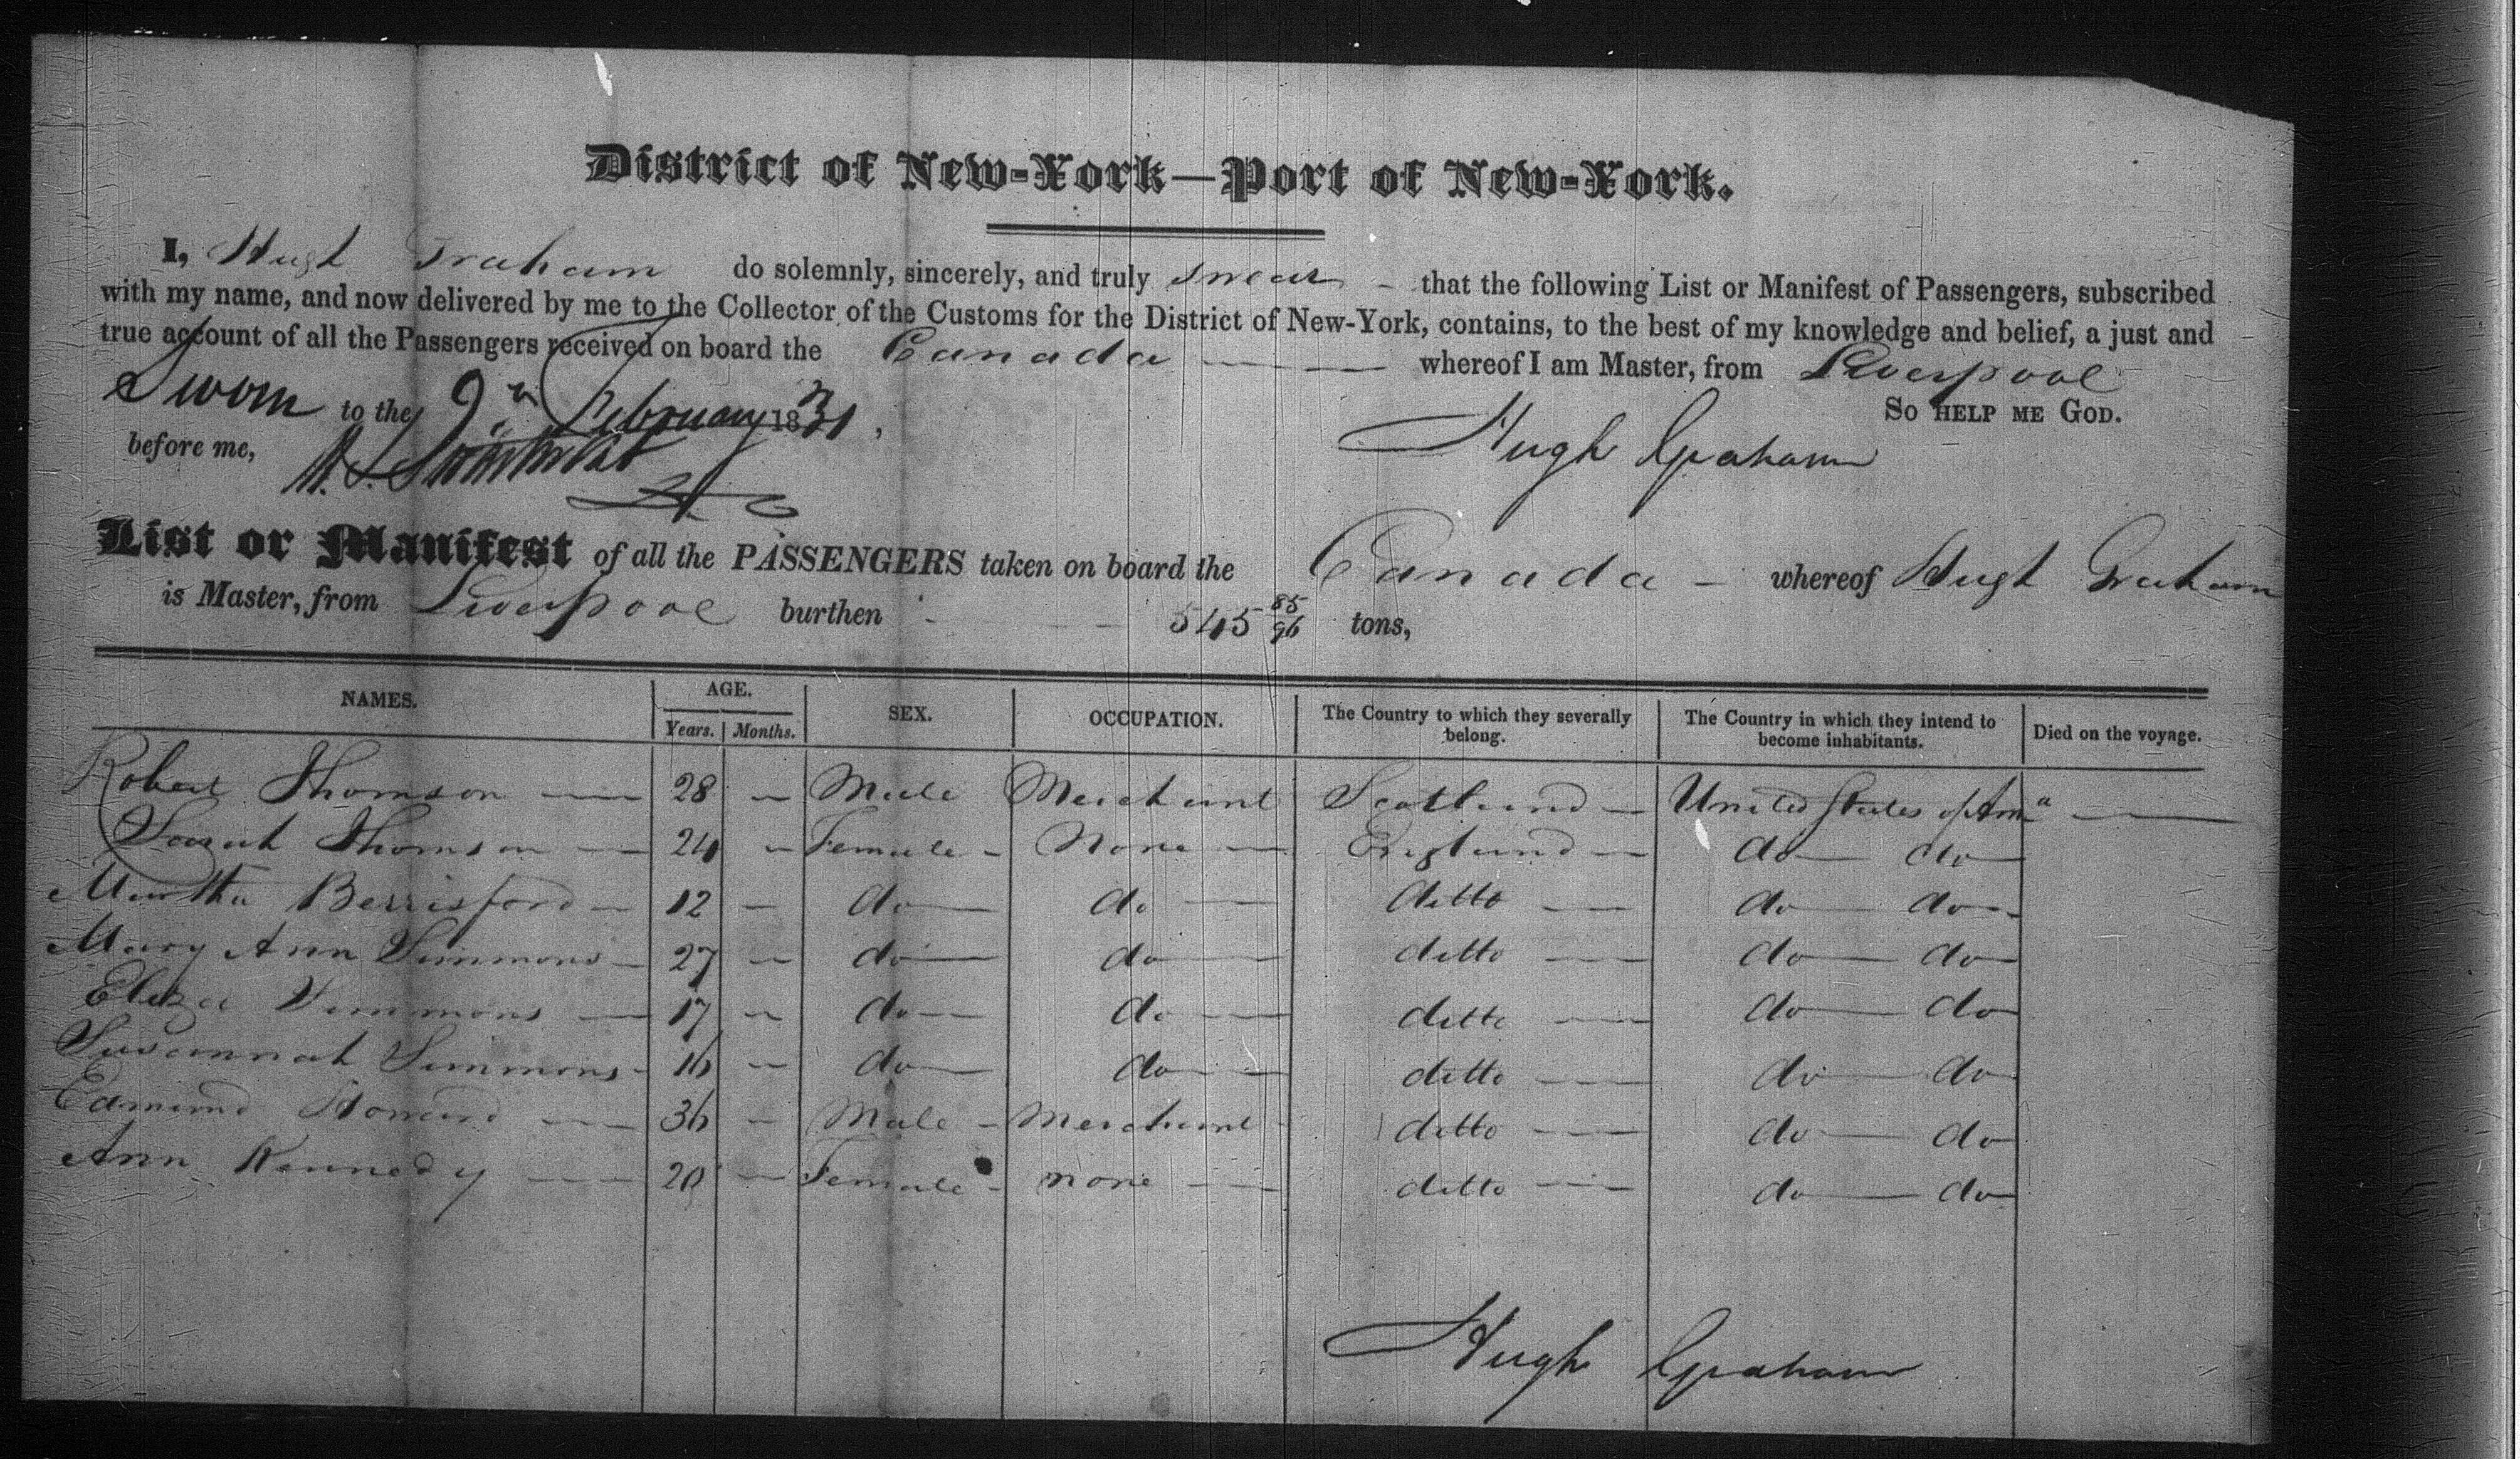 District of New-York—Port of New-York.
I, Hugh Graham do solemnly, sincerely, and truly swear - that the following List or Manifest of Passengers, subscribed
with my name, and now delivered by me to the Collector of the Customs for the District of New-York, contains, to the best of my knowledge and belief, a just and
true account of all the Passengers received on board the Canada whereof I am Master, from Liverpool
Sworn to the 9th February 1831, So help me God.
before me, Hugh Graham
List or Manifest of all the PASSENGERS taken on board the Canada - whereof Hugh Graham
is Master, from Liverpool burthen 545 85/96 tons,
NAMES. AGE. SEX. OCCUPATION. The Country to which they severally belong. The Country in which they intend to become inhabitants. Died on the voyage.
Years. Months.
Robert Thomson — 28 — Male Merchant Scotland — United States of Ama —
Sarah Thomson — 24 — Female — None — England — do — do —
Martha Berrisford — 12 — do — do — ditto — do — do —
Mary Ann Simmons — 27 — do — do — ditto — do — do —
Eliza Simmons — 17 — do — do — ditto — do — do —
Susannah Simmons — 16 — do — do — ditto — do — do —
Edmund Howard — 36 — Male — Merchant — ditto — do — do —
Ann Kennedy — 20 — Female — none — ditto — do — do —
Hugh Graham